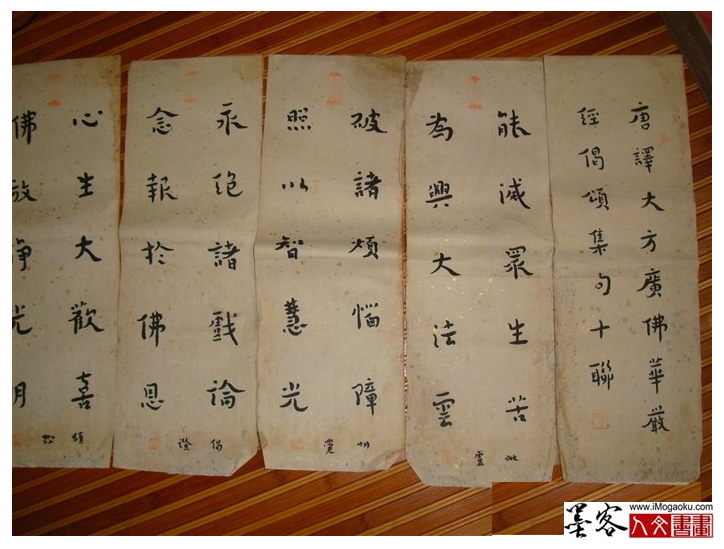 唐譯大方廣佛華嚴
經偈頌集句十聯
能滅眾生苦
為興大法雲
破諸煩惱障
照以智慧光
永絕諸戲論
念報於佛恩
心生大歡喜
佛放淨光明
墨客
www.iMogaoku.com
人文書畫